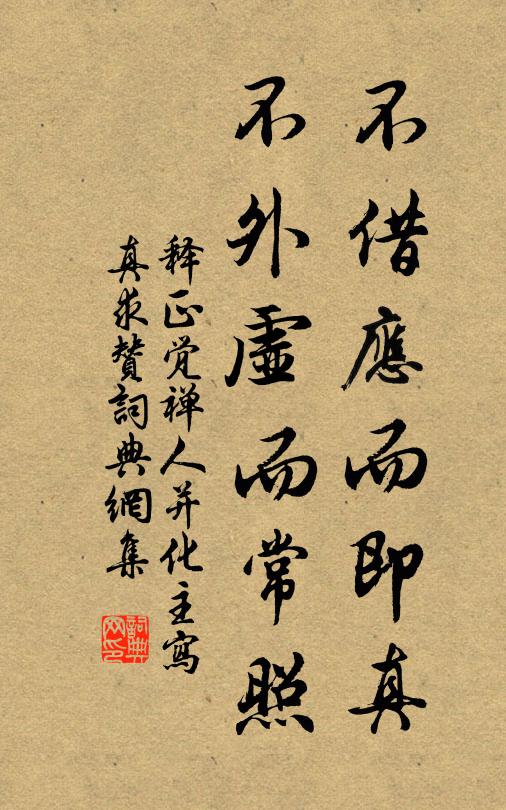 不借應而即真
不外虛而常照
释正觉禅人并化主寫
真求贊詞典網集
詞典网印